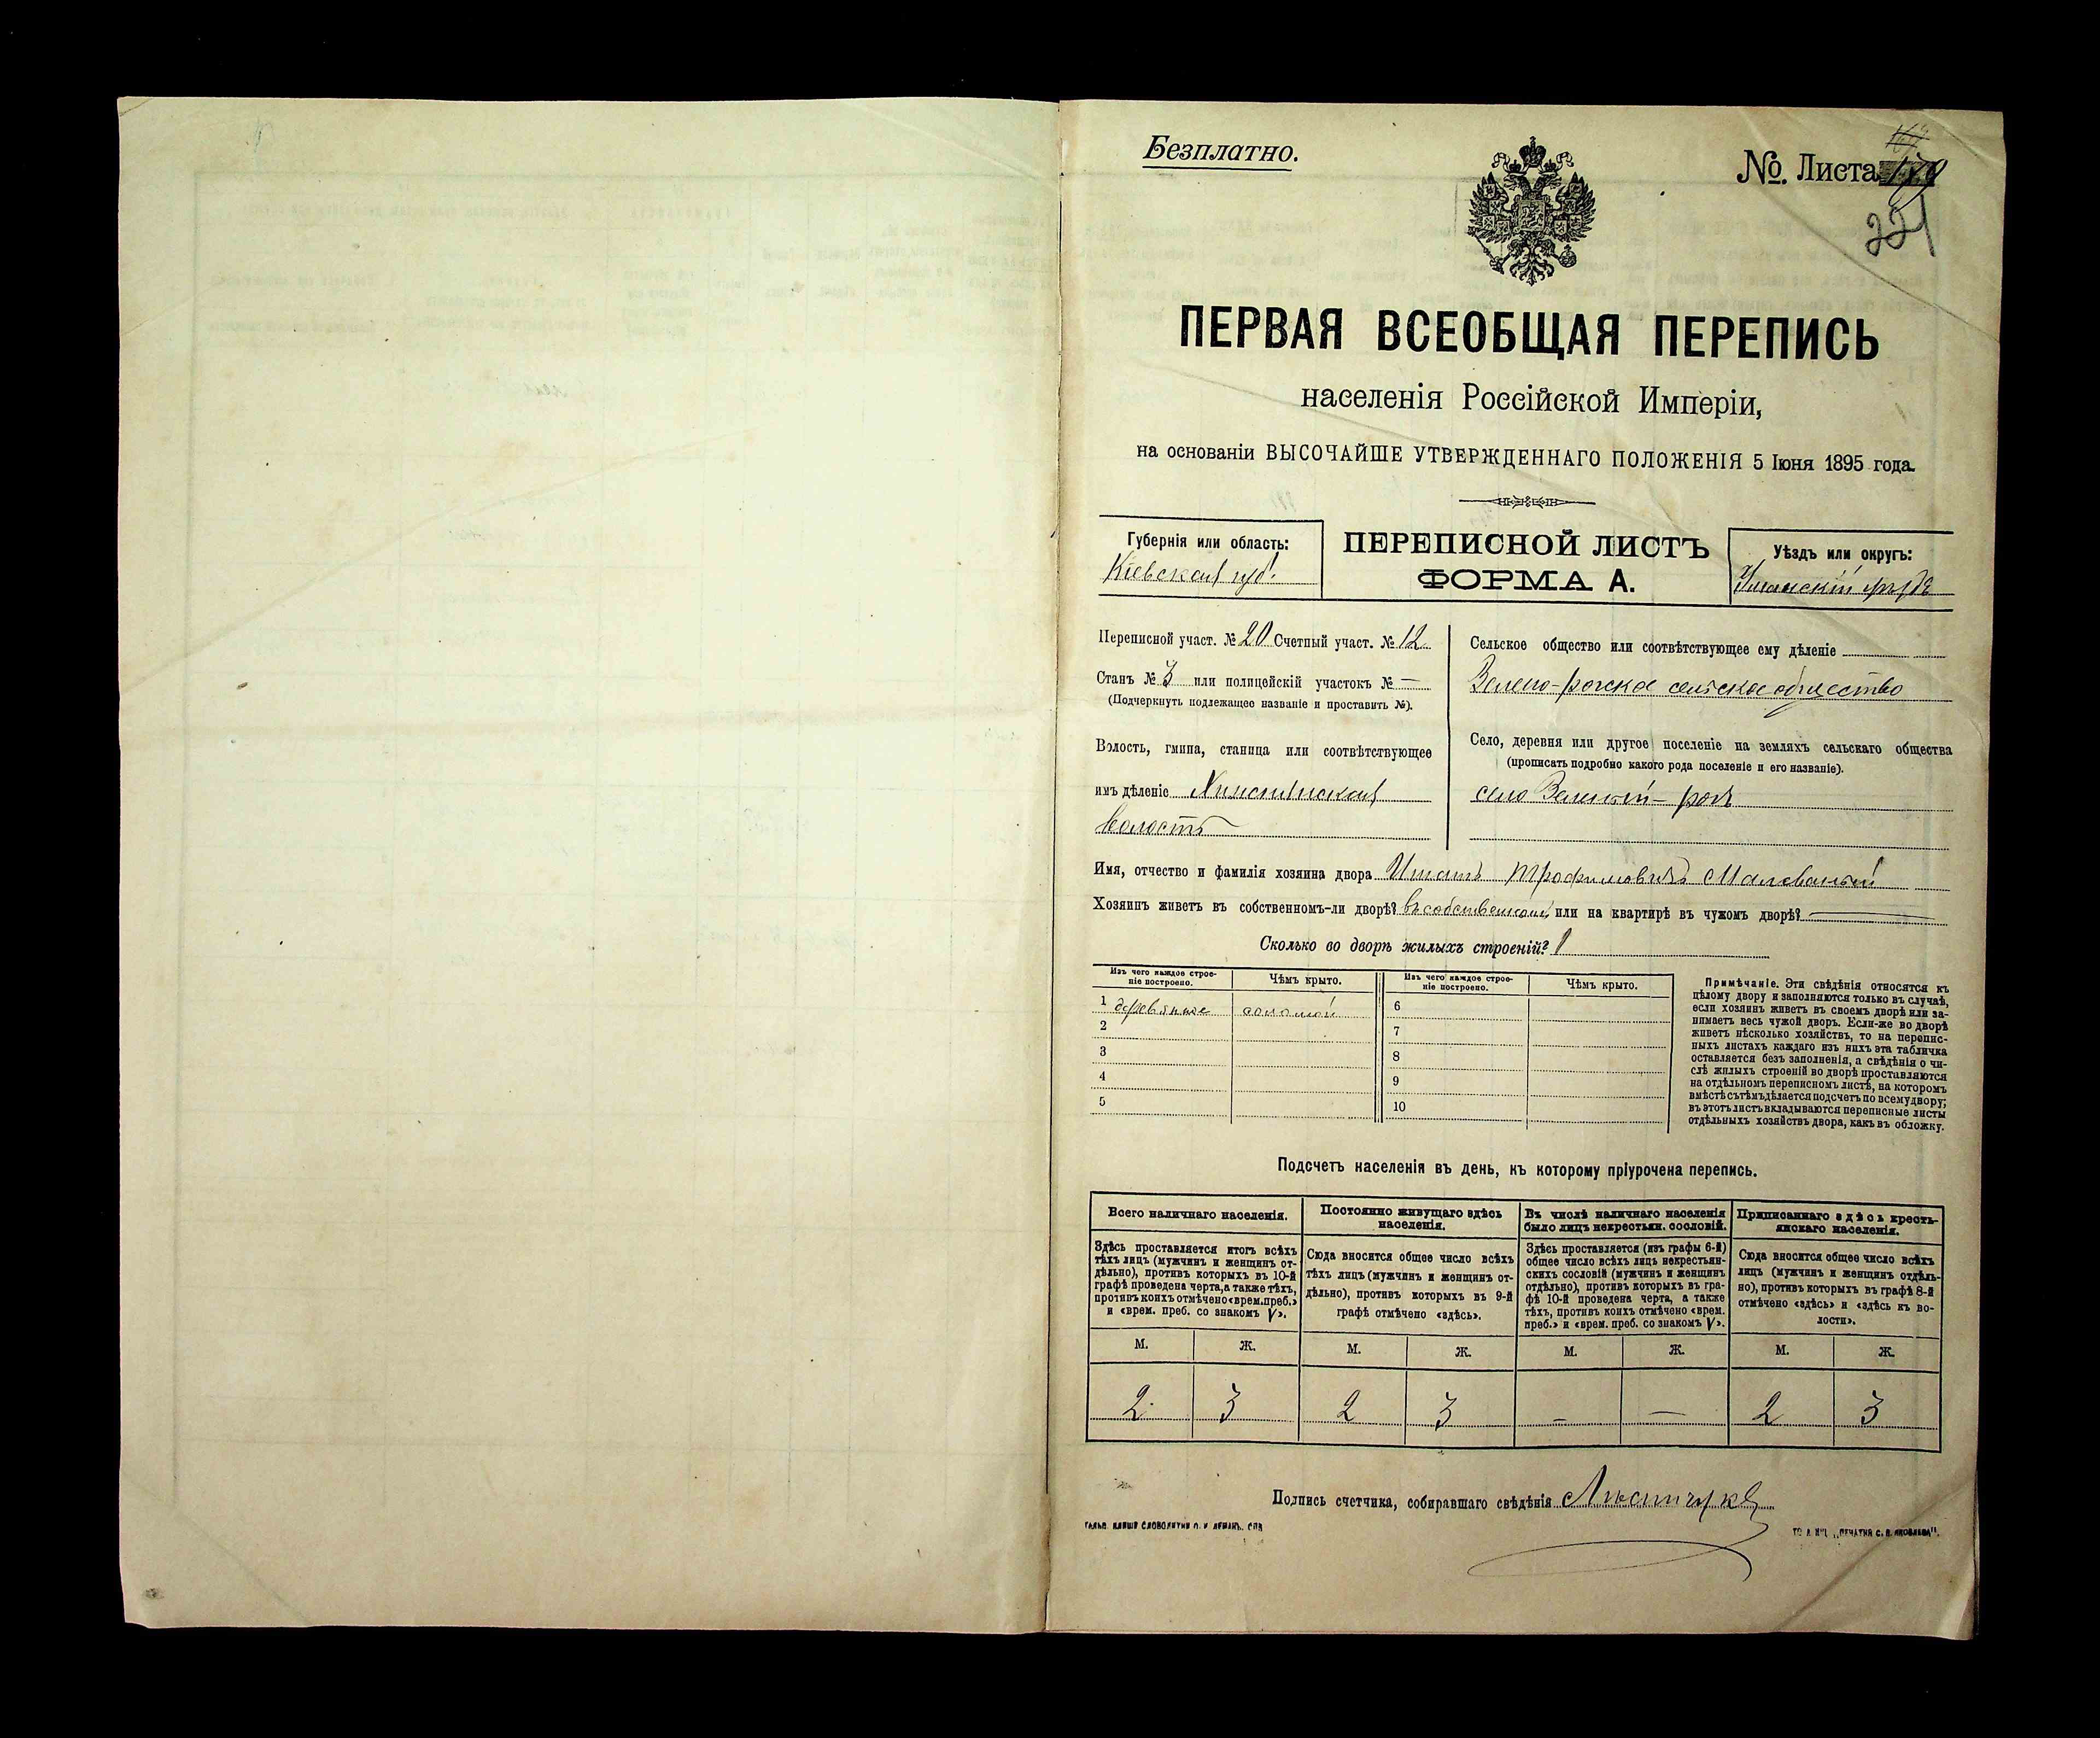 Безплатно.
No. Листа 179
221
ПЕРВАЯ ВСЕОБЩАЯ ПЕРЕПИСЬ
населенія Россійской Имперіи,
на основаніи ВЫСОЧАЙШЕ УТВЕРЖДЕННАГО ПОЛОЖЕНІЯ 5 Іюня 1895 года.
Губернія или область:
Кіевская губ.
ПЕРЕПИСНОЙ ЛИСТЪ
ФОРМА А.
Уѣздъ или округъ:
Уманскій уѣздъ
Переписной участ. № 20 Счетный участ. № 12
Станъ № 3 или полицейскій участокъ № —
(Подчеркнуть подлежащее названіе и проставить №).
Волость, гмина, станица или соотвѣтствующее
имъ дѣленіе
волость
Сельское общество или соотвѣтствующее ему дѣленіе
Зелено-рогское сельское общество
Село, деревня или другое поселеніе на земляхъ сельскаго общества
(прописать подробно какого рода поселеніе и его названіе).
село Зеленый-рогъ
Имя, отчество и фамилія хозяина двора Игнатъ Трофимовичъ Малеваный
Хозяинъ живетъ въ собственномъ-ли дворѣ? въ собственномъ или на квартирѣ въ чужомъ дворѣ? —
Сколько во дворѣ жилыхъ строеній? 1
Изъ чего каждое строе-
ніе построено.
Чѣмъ крыто.
1 деревянное соломой
2
3
4
5
Изъ чего каждое строе-
ніе построено.
Чѣмъ крыто.
6
7
8
9
10
Примѣчаніе. Эти свѣдѣнія относятся къ
цѣлому двору и заполняются только въ случаѣ,
если хозяинъ живетъ въ своемъ дворѣ или за-
нимаетъ весь чужой дворъ. Если-же во дворѣ
живетъ нѣсколько хозяйствъ, то на перепис-
ныхъ листахъ каждаго изъ нихъ эта табличка
оставляется безъ заполненія, а свѣдѣнія о чи-
слѣ жилыхъ строеній во дворѣ проставляются
на отдѣльномъ переписномъ листѣ, на которомъ
вмѣстѣ съ тѣмъ дѣлается подсчетъ по всему двору;
въ этотъ листъ вкладываются переписные листы
отдѣльныхъ хозяйствъ двора, какъ въ обложку.
Подсчетъ населенія въ день, къ которому пріурочена перепись.
Всего наличнаго населенія.
Здѣсь проставляется итогъ всѣхъ
тѣхъ лицъ (мужчинъ и женщинъ от-
дѣльно), противъ которыхъ въ 10-й
графѣ проведена черта, а также тѣхъ,
противъ коихъ отмѣчено «врем. преб.»
и «врем. преб. со знакомъ V».
Постоянно живущаго здѣсь
населенія.
Сюда вносится общее число всѣхъ
тѣхъ лицъ (мужчинъ и женщинъ от-
дѣльно), противъ которыхъ въ 9-й
графѣ отмѣчено «здѣсь».
Въ числѣ наличнаго населенія
было лицъ некрестьян. сословій.
Здѣсь проставляется (изъ графы 6-й)
общее число всѣхъ лицъ некрестьян-
скихъ сословій (мужчинъ и женщинъ
отдѣльно), противъ которыхъ въ гра-
фѣ 10-й проведена черта, а также
тѣхъ, противъ коихъ отмѣчено «врем.
преб.» и «врем. преб. со знакомъ V».
Приписаннаго здѣсь кресть-
янскаго населенія.
Сюда вносится общее число всѣхъ
лицъ (мужчинъ и женщинъ отдѣль-
но), противъ которыхъ въ графѣ 8-й
отмѣчено «здѣсь» и «здѣсь къ во-
лости».
М. Ж. М. Ж. М. Ж. М. Ж.
2 3 2 3 — — 2 3
Подпись счетчика, собиравшаго свѣдѣнія